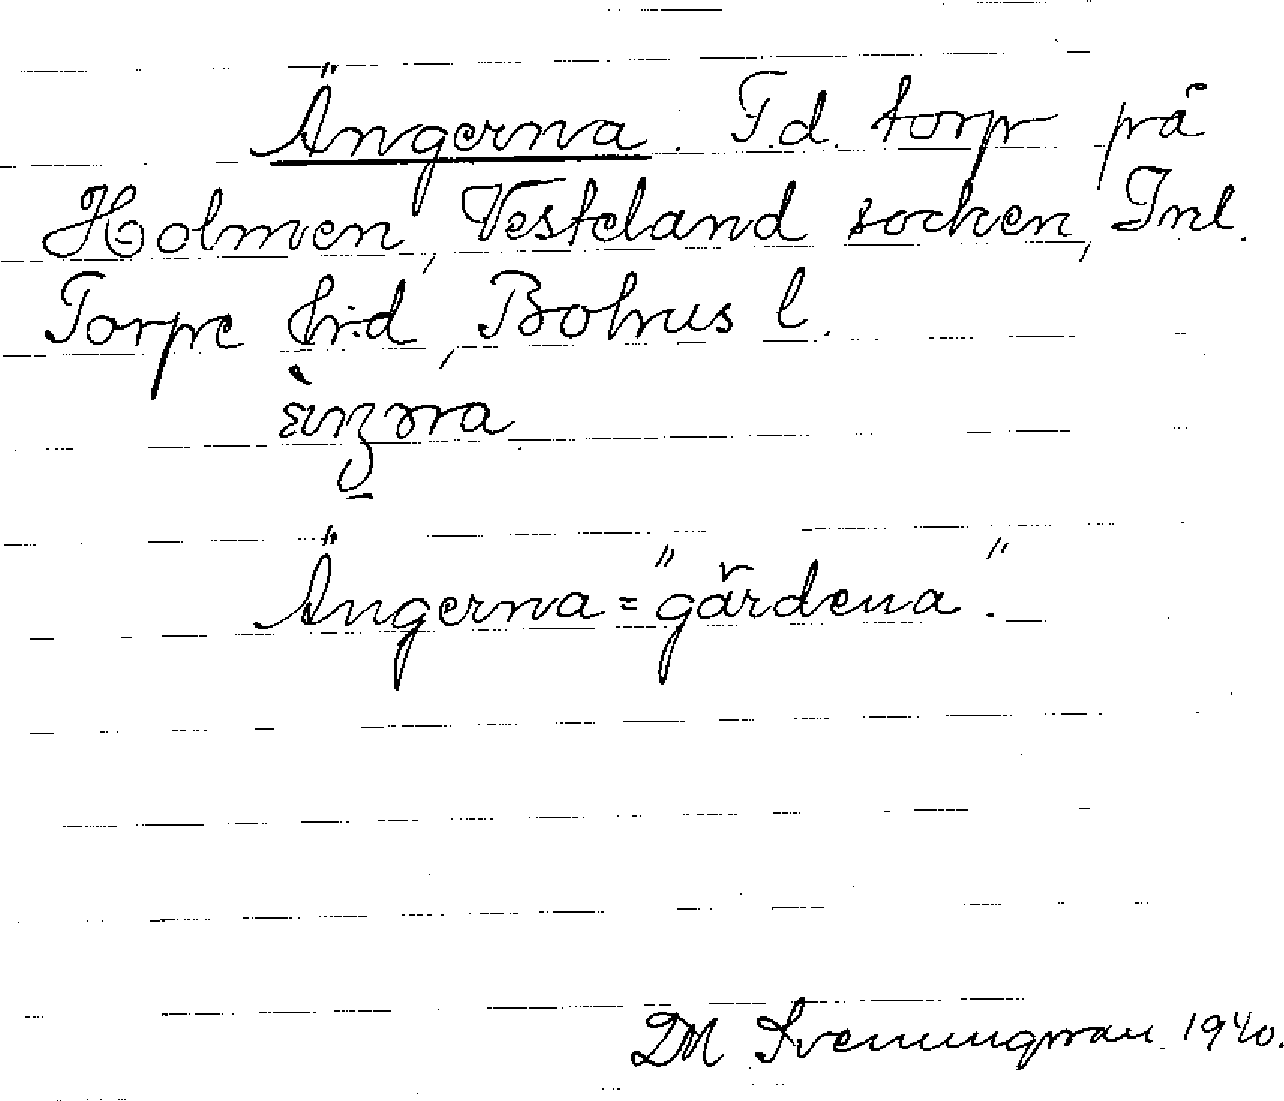 Ängerna. F.d. torp på
Holmen, Vesteland socken, Inl.
Torpe hrd, Bohus l.
Ängerna = "gärdena".
DM Svenningman 1940.